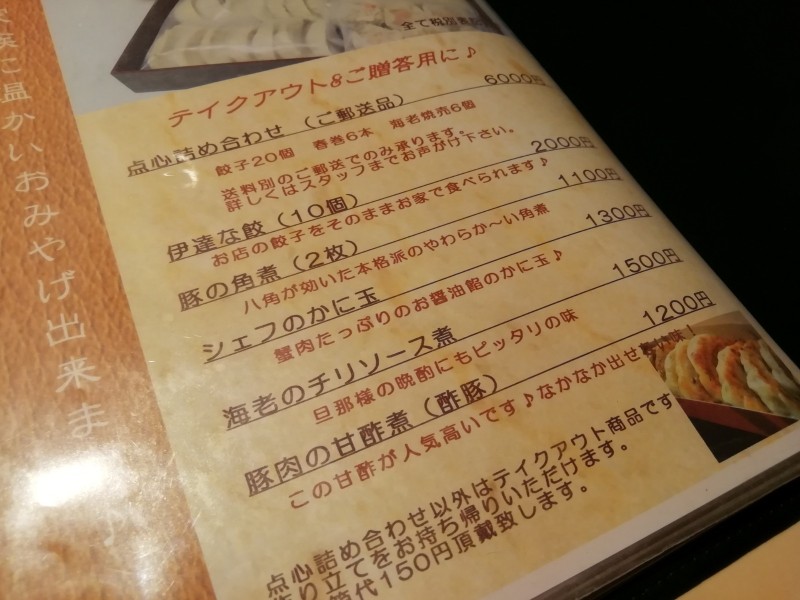 全て税別表記
テイクアウト&ご贈答用に♪
点心詰め合わせ (ご郵送品) 6000円
餃子20個 春巻6本 海老焼売6個
送料別のご郵送でのみ承ります。
詳しくはスタッフまでお声がけ下さい。
伊達な餃(10個) 2000円
お店の餃子をそのままお家で食べられます♪
豚の角煮(2枚) 1100円
八角が効いた本格派のやわらか〜い角煮
シェフのかに玉 1300円
蟹肉たっぷりのお醤油餡のかに玉♪
海老のチリソース煮 1500円
旦那様の晩酌にもピッタリの味
豚肉の甘酢煮(酢豚) 1200円
この甘酢が人気高いです♪なかなか出せない味!
点心詰め合わせ以外はテイクアウト商品です
作り立てをお持ち帰りいただけます。
代150円頂戴致します。
に温かいおみやげ出来ま